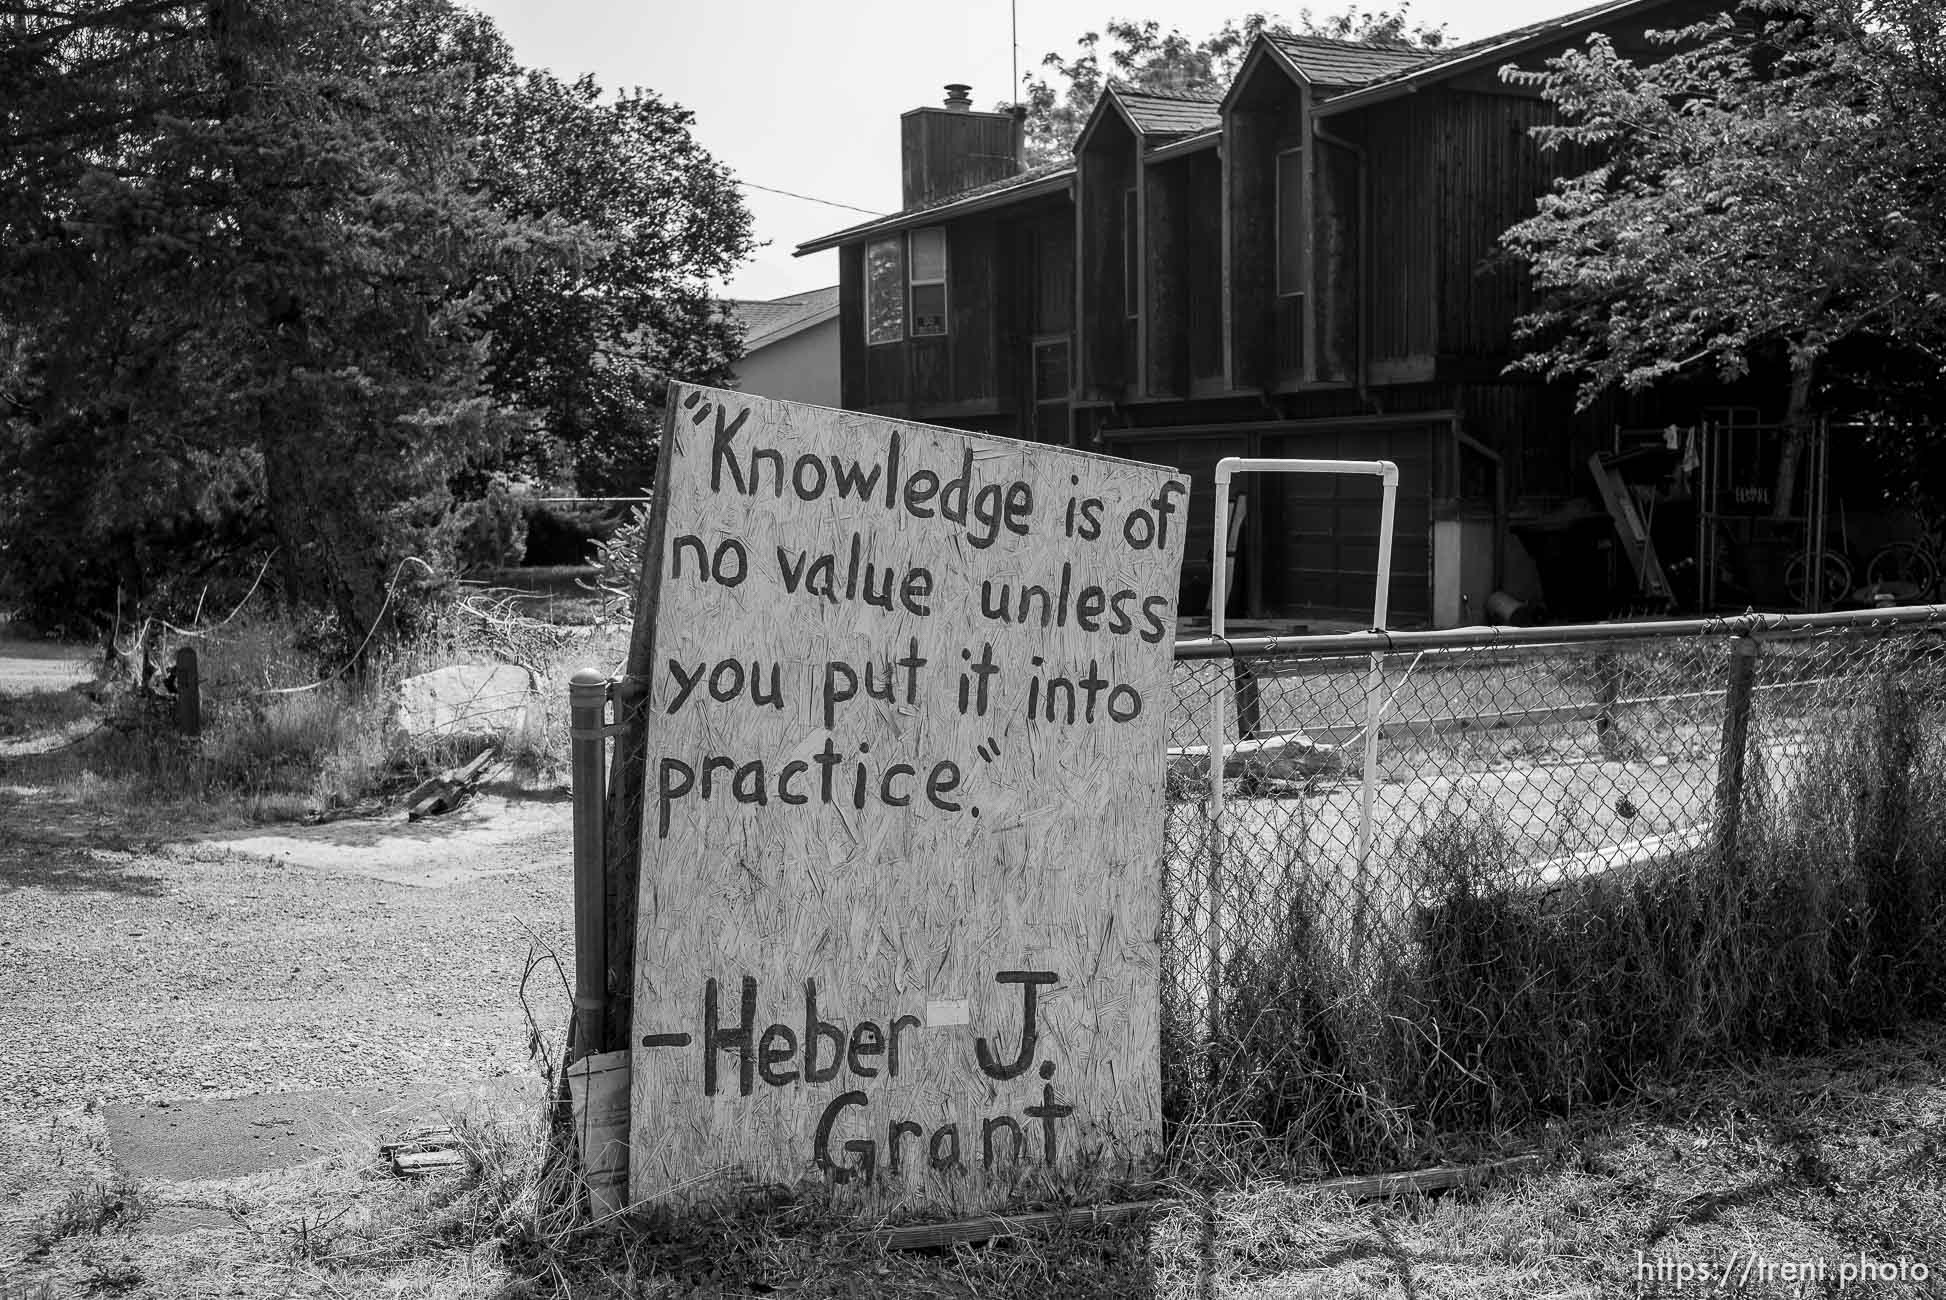 "Knowledge is of
no value unless
you put it into
practice."
-Heber J.
Grant
https://trent.photo